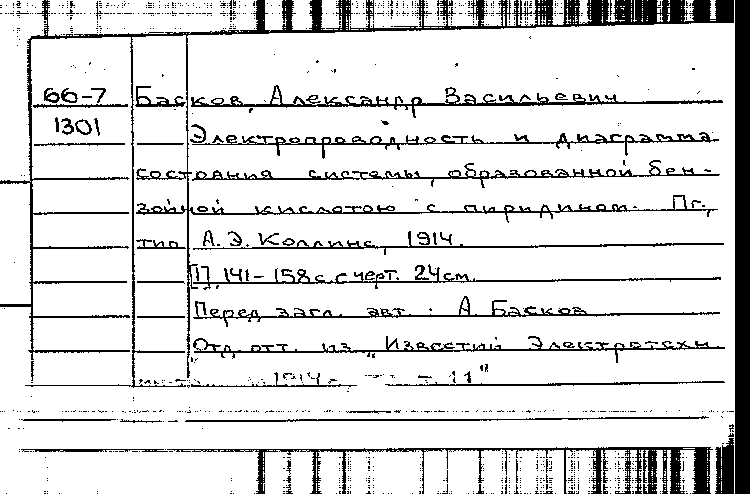 66-7 Басков, Александр Васильевич
1301 Электропроводность и диаграмма
состояния системы, образованной бен-
зойной кислотою с пиридином. Пг.,
тип. А. Э. Коллинс, 1914.
[1], 141-158 с. с черт. 24 см.
Перед загл. авт.: А. Басков
Отд. отт. из "Известий Электротехн.
1914 г., т. 11"